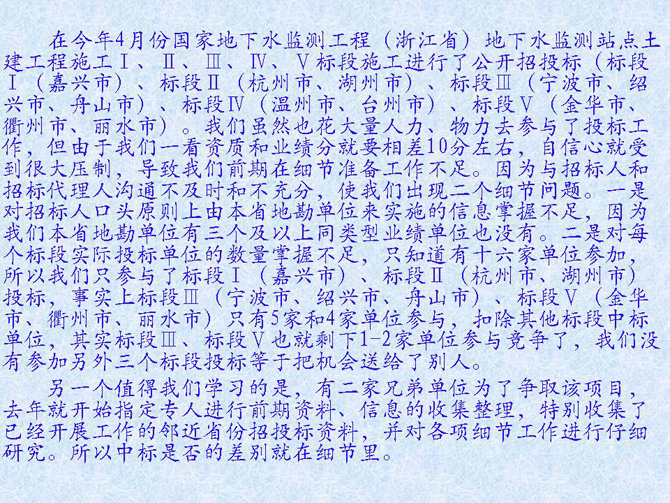 在今年4月份国家地下水监测工程（浙江省）地下水监测站点土
建工程施工Ⅰ、Ⅱ、Ⅲ、Ⅳ、Ⅴ标段施工进行了公开招投标（标段
Ⅰ（嘉兴市）、标段Ⅱ（杭州市、湖州市）、标段Ⅲ（宁波市、绍
兴市、舟山市）、标段Ⅳ（温州市、台州市）、标段Ⅴ（金华市、
衢州市、丽水市）。我们虽然也花大量人力、物力去参与了投标工
作，但由于我们一看资质和业绩分就要相差10分左右，自信心就受
到很大压制，导致我们前期在细节准备工作不足。因为与招标人和
招标代理人沟通不及时和不充分，使我们出现二个细节问题。一是
对招标人口头原则上由本省地勘单位来实施的信息掌握不足，因为
我们本省地勘单位有三个及以上同类型业绩单位也没有。二是对每
个标段实际投标单位的数量掌握不足，只知道有十六家单位参加，
所以我们只参与了标段Ⅰ（嘉兴市）、标段Ⅱ（杭州市、湖州市）
投标，事实上标段Ⅲ（宁波市、绍兴市、舟山市）、标段Ⅴ（金华
市、衢州市、丽水市）只有5家和4家单位参与，扣除其他标段中标
单位，其实标段Ⅲ、标段Ⅴ也就剩下1-2家单位参与竞争了，我们没
有参加另外三个标段投标等于把机会送给了别人。
另一个值得我们学习的是，有二家兄弟单位为了争取该项目，
去年就开始指定专人进行前期资料、信息的收集整理，特别收集了
已经开展工作的邻近省份招投标资料，并对各项细节工作进行仔细
研究。所以中标是否的差别就在细节里。